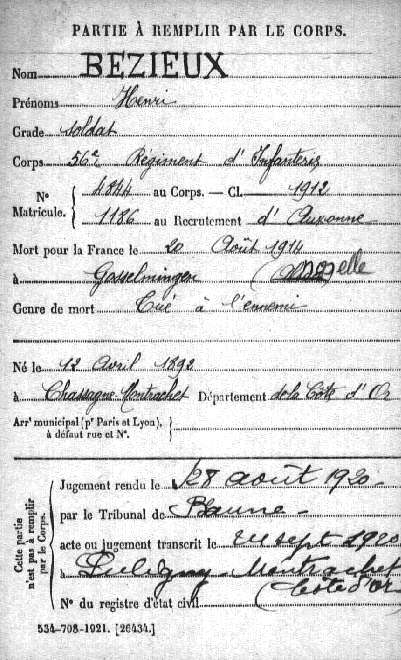 PARTIE À REMPLIR PAR LE CORPS.
Nom BEZIEUX
Prénoms Henri
Grade soldat
Corps 56e Régiment d'Infanterie
N° Matricule. 4844 au Corps. — Cl. 1912
1186 au Recrutement d'Auxonne
Mort pour la France le 20 Août 1914
à Gosselmingen (Moselle
Genre de mort Tué à l'ennemi
Né le 12 Avril 1892
à Chassagne Montrachet Département de la Côte d'Or
Arrt municipal (pr Paris et Lyon),
à défaut rue et N°.
Cette partie n'est pas à remplir par le Corps.
Jugement rendu le 28 août 1920
par le Tribunal de Beaune
acte ou jugement transcrit le sept 1920
à Puligny-Montrachet
(Côte d'Or)
N° du registre d'état civil
534-708-1921. [26434.]